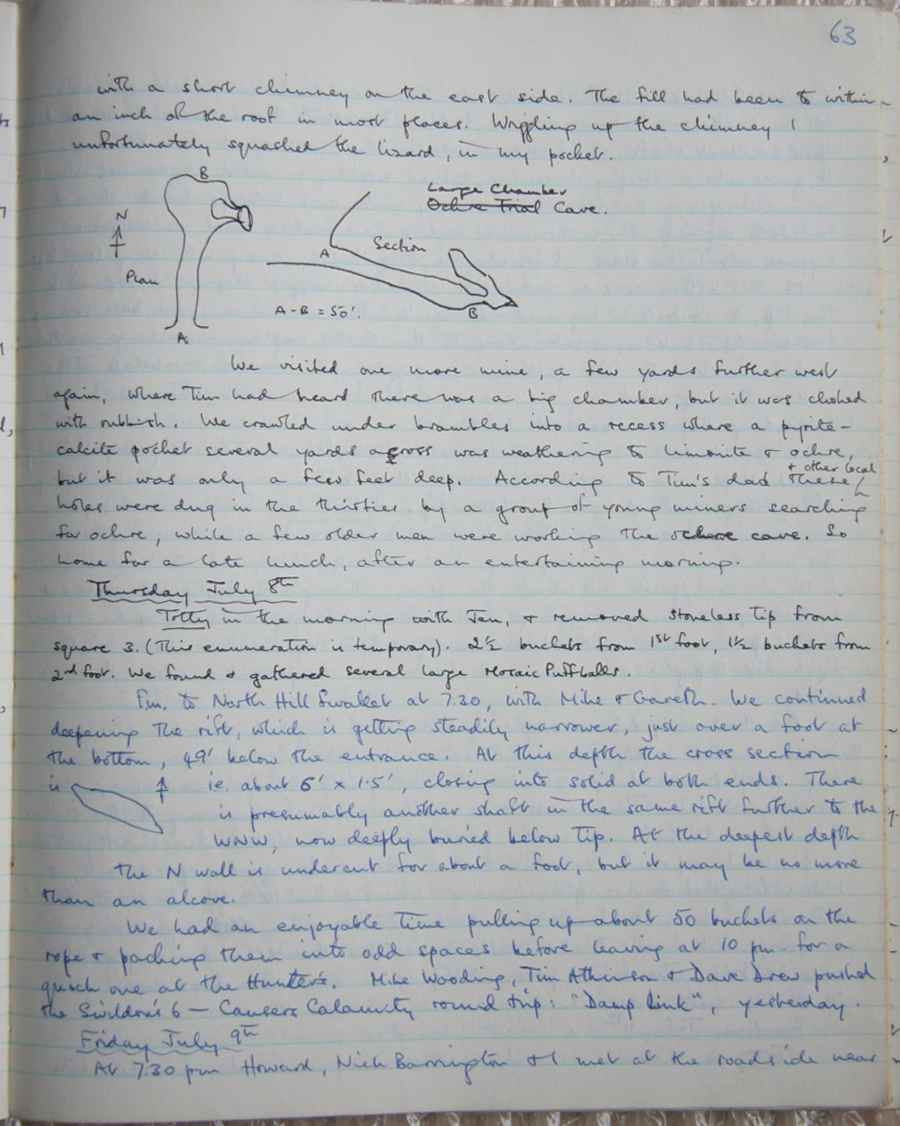 63
with a short chimney on the east side. The fill had been to within
an inch of the roof in most places. Wriggling up the chimney I
unfortunately squashed the lizard, in my pocket.
Large Chamber
Ochre Trial Cave.
B
N
Plan
A
Section
A
A-B = 50'.
B
We visited one more mine, a few yards further west
again, where Tim had heard there was a big chamber, but it was choked
with rubbish. We crawled under brambles into a recess where a pyrite-
calcite pocket several yards across was weathering to limonite & ochre,
but it was only a few feet deep. According to Tim's dad these & other local
holes were dug in the thirties by a group of young miners searching
for ochre, while a few older men were working the ochre cave. So
home for a late lunch, after an entertaining morning.
Thursday July 8th
Totty in the morning with Jen, & removed stoneless tip from
square 3. (This enumeration is temporary). 2½ buckets from 1st foot, 1½ buckets from
2nd foot. We found & gathered several large Mosaic Puffballs.
Em. to North Hill Swallet at 7.30, with Mike & Gareth. We continued
deepening the rift, which is getting steadily narrower, just over a foot at
the bottom, 49' below the entrance. At this depth the cross section
is ie. about 6' x 1.5', closing into solid at both ends. There
is presumably another shaft in the same rift further to the
WNW, now deeply buried below tip. At the deepest depth
the N wall is undercut for about a foot, but it may be no more
than an alcove.
We had an enjoyable time pulling up about 50 buckets on the
rope & packing them into odd spaces before leaving at 10 pm for a
quick one at the Hunter's. Mike Wooding, Tim Atkinson & Dave Drew pushed
the Swildon's 6 – Causers Calamity round trip: "Damp Link", yesterday.
Friday July 9th
At 7.30 pm Howard, Nick Barrington & I met at the roadside near